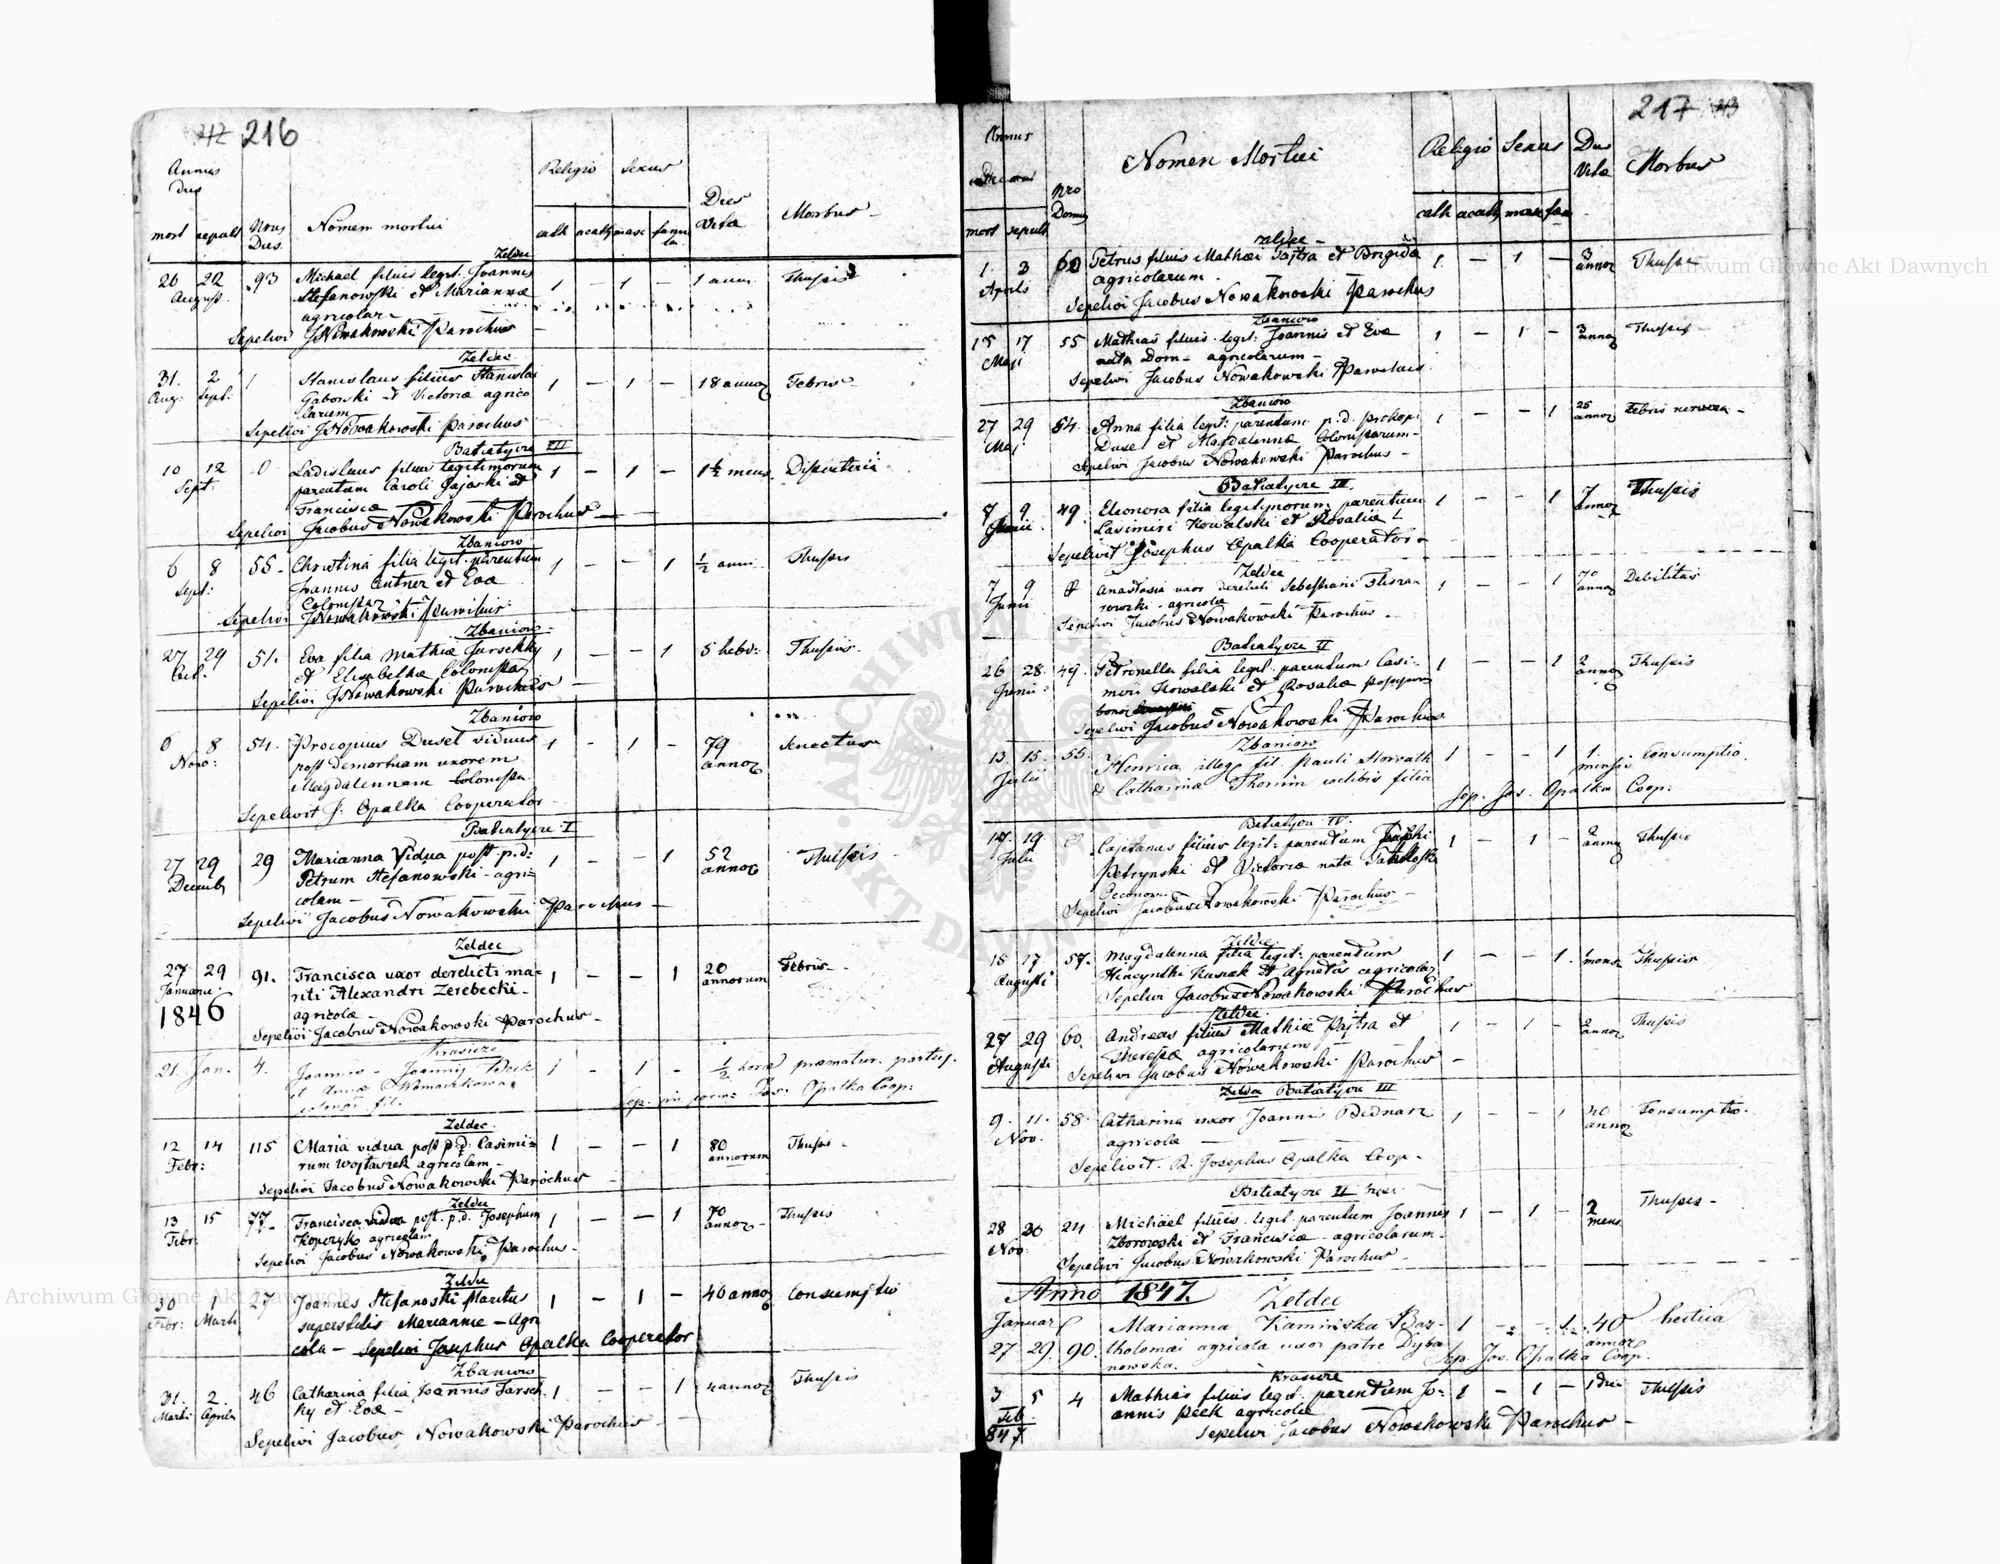 216
Annus
Dies
Religio Sexus
Dies
Vitæ
Morbus
mort sepult Nrus
Dus. Nomen mortui cath acath masc femi
na
Zeldec
20 22 93 Michael filius legit. Joannis 1 - 1 - 1 anni Thussis
August. Stefanowski et Marianna
agricolar
Sepelivi JNowakowski Parochus
Zeldec
31. 2 1 Stanislaus filius Stanislai 1 - 1 - 18 annor Febris
Aug: Sept: Gaborski et Victoria agrico
larum
Sepelivi JNowakowski Parochus
Batiatycze III
10 12 0 Ladislaus filius legitimorum 1 - 1 - 1½ mens. Dissenteria
Sept: parentum Caroli Gajaski et
Francisca
Sepelivi Jacobus Nowakowski Parochus
Zbaniow
6 8 55 Christina filia legit. parentum 1 - - 1 ½ anni Thussis
Sept: Joannis Antner et Eva
Colonistar
Sepelivi JNowakowski Parochus
Zbaniow
27 29 51. Eva filia Mathiæ Jarschky 1 - - 1 5 hebd: Thussis
Oct. et Elisabetha Colonistar
Sepelivi JNowakowski Parochus
Zbaniow
6 8 54. Procopius Dusel viduus 1 - 1 - 79 Senectus
Nov: post demortuam uxorem annor
Magdalennam Colonista
Sepelivit J. Opalka Cooperator
Batiatycze I
27 29 29 Marianna Vidua post p.d: 1 - - 1 52 Thussis
Decemb Petrum Stefanowski - agri- annor
colam -
Sepelivi Jacobus Nowakowski Parochus
Zeldec
27 29 91. Francisca uxor derelicti ma- 1 - - 1 20 Febris
Januarii riti Alexandri Zerebecki - annorum
1846 agricolæ -
Sepelivi Jacobus Nowakowski Parochus
Krasicze
21. Jan. 4. Joannes - Joannis Peck 1 - 1 - ½ horæ præmatur. partus.
et Annæ
colonor fil. Sep. Jos. Opalka Coop:
Zeldec
12 14 115 Maria vidua post p.d: Casimi- 1 - - 1 80 Thussis
Febr: rum Wojtaszek agricolam - annorum
Sepelivi Jacobus Nowakowski Parochus
Zeldec
13 15 77 Francisca vidua post p.d. Josephum 1 - - 1 70 Thussis
Febr: Kopczyk agricolam annor
Sepelivi Jacobus Nowakowski Parochus
Zeldec
30 1 27 Joannes Stefanoski Maritus 1 - 1 - 46 annor Consumptio
Febr: Martii superstitis Mariannæ - Agri
cola - Sepelivi Josephus Opalka Cooperator
Zbaniow
31. 2 46 Catharina filia Joannis Jarsch 1 - - 1 4 annor Thussis
Martii Aprilis ky et Evæ -
Sepelivi Jacobus Nowakowski Parochus
217
Annus
Nro
Domus
Nomen Mortui Religio Sexus Dies
Vitæ Morbus
mort sepult cath acath masc fem
Zeldec
1. 3 60 Petrus filius Mathæi Pajtra et Brigida 1. - 1 - 3 annor Thussis
Aprilis agricolarum.
Sepelivi Jacobus Nowakowski Parochus
Zbaniow
15 17 55 Mathias filius legit: Joannis et Eva 1 - 1 - 3 annor Thussis
Maji nata Dom - agricolarum -
Sepelivi Jacobus Nowakowski Parochus
Zbaniow
27 29 54. Anna filia legit: parentum p.d. Prokopi 1 - - 1 25 annor Febris nervosa -
Maj Dusel et Magdalenna Colonistarum -
Sepelivi Jacobus Nowakowski Parochus -
Batiatycze II.
7 9 49. Eleonora filia legitimorum parentum 1 - - 1 7 annor Thussis
Junii Casimiri Kowalski et Rosaliæ
Sepelivit Josephus Opalka Cooperator
Zeldec
7 9 Anastasia uxor derelicti Sebestiani 1 - - 1 70 annor Debilitas
Junii agricolæ
Sepelivi Jacobus Nowakowski Parochus -
Batiatycze II
26 28 49. Petronella filia legit. parentum Casi- 1 - - 1 2 annor Thussis
Junii miri Kowalski et Rosaliæ
Sepelivi Jacobus Nowakowski Parochus
Zbaniow
13. 15. 55. Henrica illeg. fil. Pauli Horvath 1 - - 1 1. mensis Consumptio
Julii & Catharinæ Thomin cœlibis filia
Sep. Jos. Opalka Coop:
Batiatycze IV.
17. 19. Cajetanus filius legit: parentum 1 - 1 - 2 annor Thussis
Julii Petrynski et Victoriæ nata
Oeconomi
Sepelivi Jacobus Nowakowski Parochus -
Zeldec
15 17 57. Magdalenna filia legit: parentum 1 - - 1. 1 mens Thussis
Augusti Kusiak et Agnetis agricolar
Sepelivi Jacobus Nowakowski Parochus
Zeldec
27 29 60. Andreas filius Mathiæ Pajtra et 1 - 1 - 2 annor Thussis
Augusti Theresæ agricolarum
Sepelivi Jacobus Nowakowski Parochus -
Zeldec Batiatycze III
9. 11. 58. Catharina uxor Joannis Bednarz 1 - - 1 40 annor Consumptio.
Nov. agricolæ
Sepelivit. R. Josephus Opalka Coop -
Batiatycze II
28 30 24 Michael filius legit. parentum Joannis 1 - 1 - 2 mens Thussis -
Nov. Zborowski et Franciscæ - agricolarum -
Sepelivi Jacobus Nowakowski Parochus -
Anno 1847.
Zeldec
Januar Marianna Kaminska Bar- 1 - - 1. 40 hectica
27 29. 90. tholomæi agricola uxor patre Dyba annor
nowska. Sep. Jos. Opalka Coop.
Krasicze
3 5 4 Mathias filius legit. parentum Jo- 1 - 1 - 1 diei Thussis
Feb. annis Peck agricolæ
847 Sepelivi Jacobus Nowakowski Parochus -
Archiwum Główne Akt Dawnych
Archiwum Główne Akt Dawnych